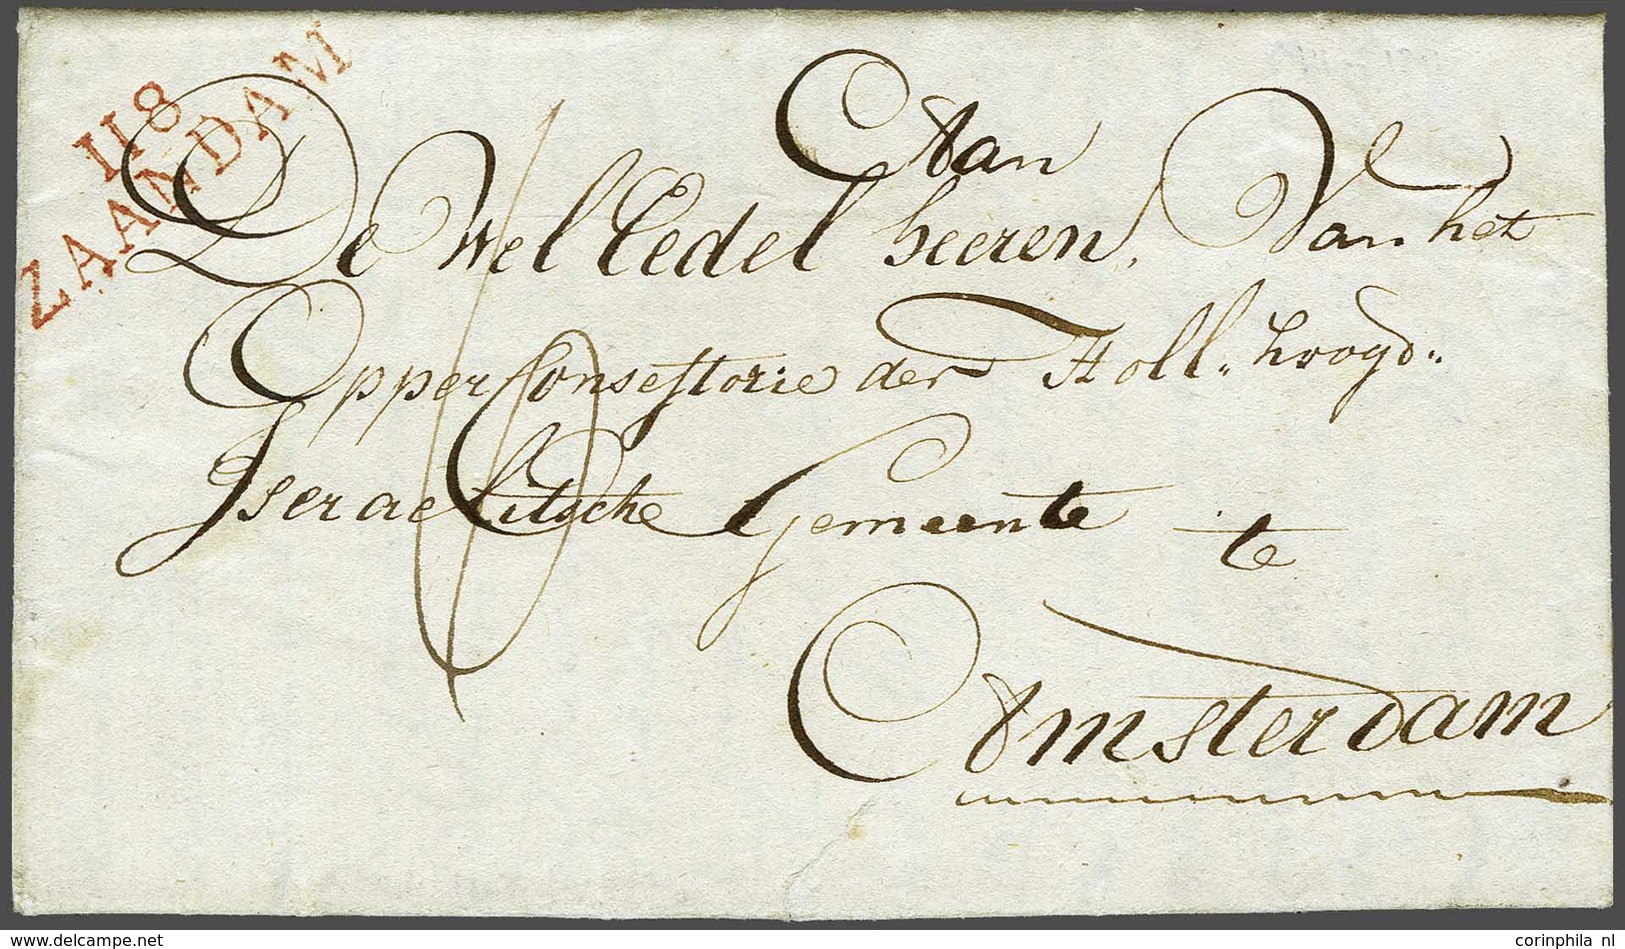 118
ZAANDAM
Aan
De Wel Eedel heeren, Van het
Opper Consestorie der Holl. hoogd.
Iseraelitsche Gemeente te
Amsterdam
corinphila nl